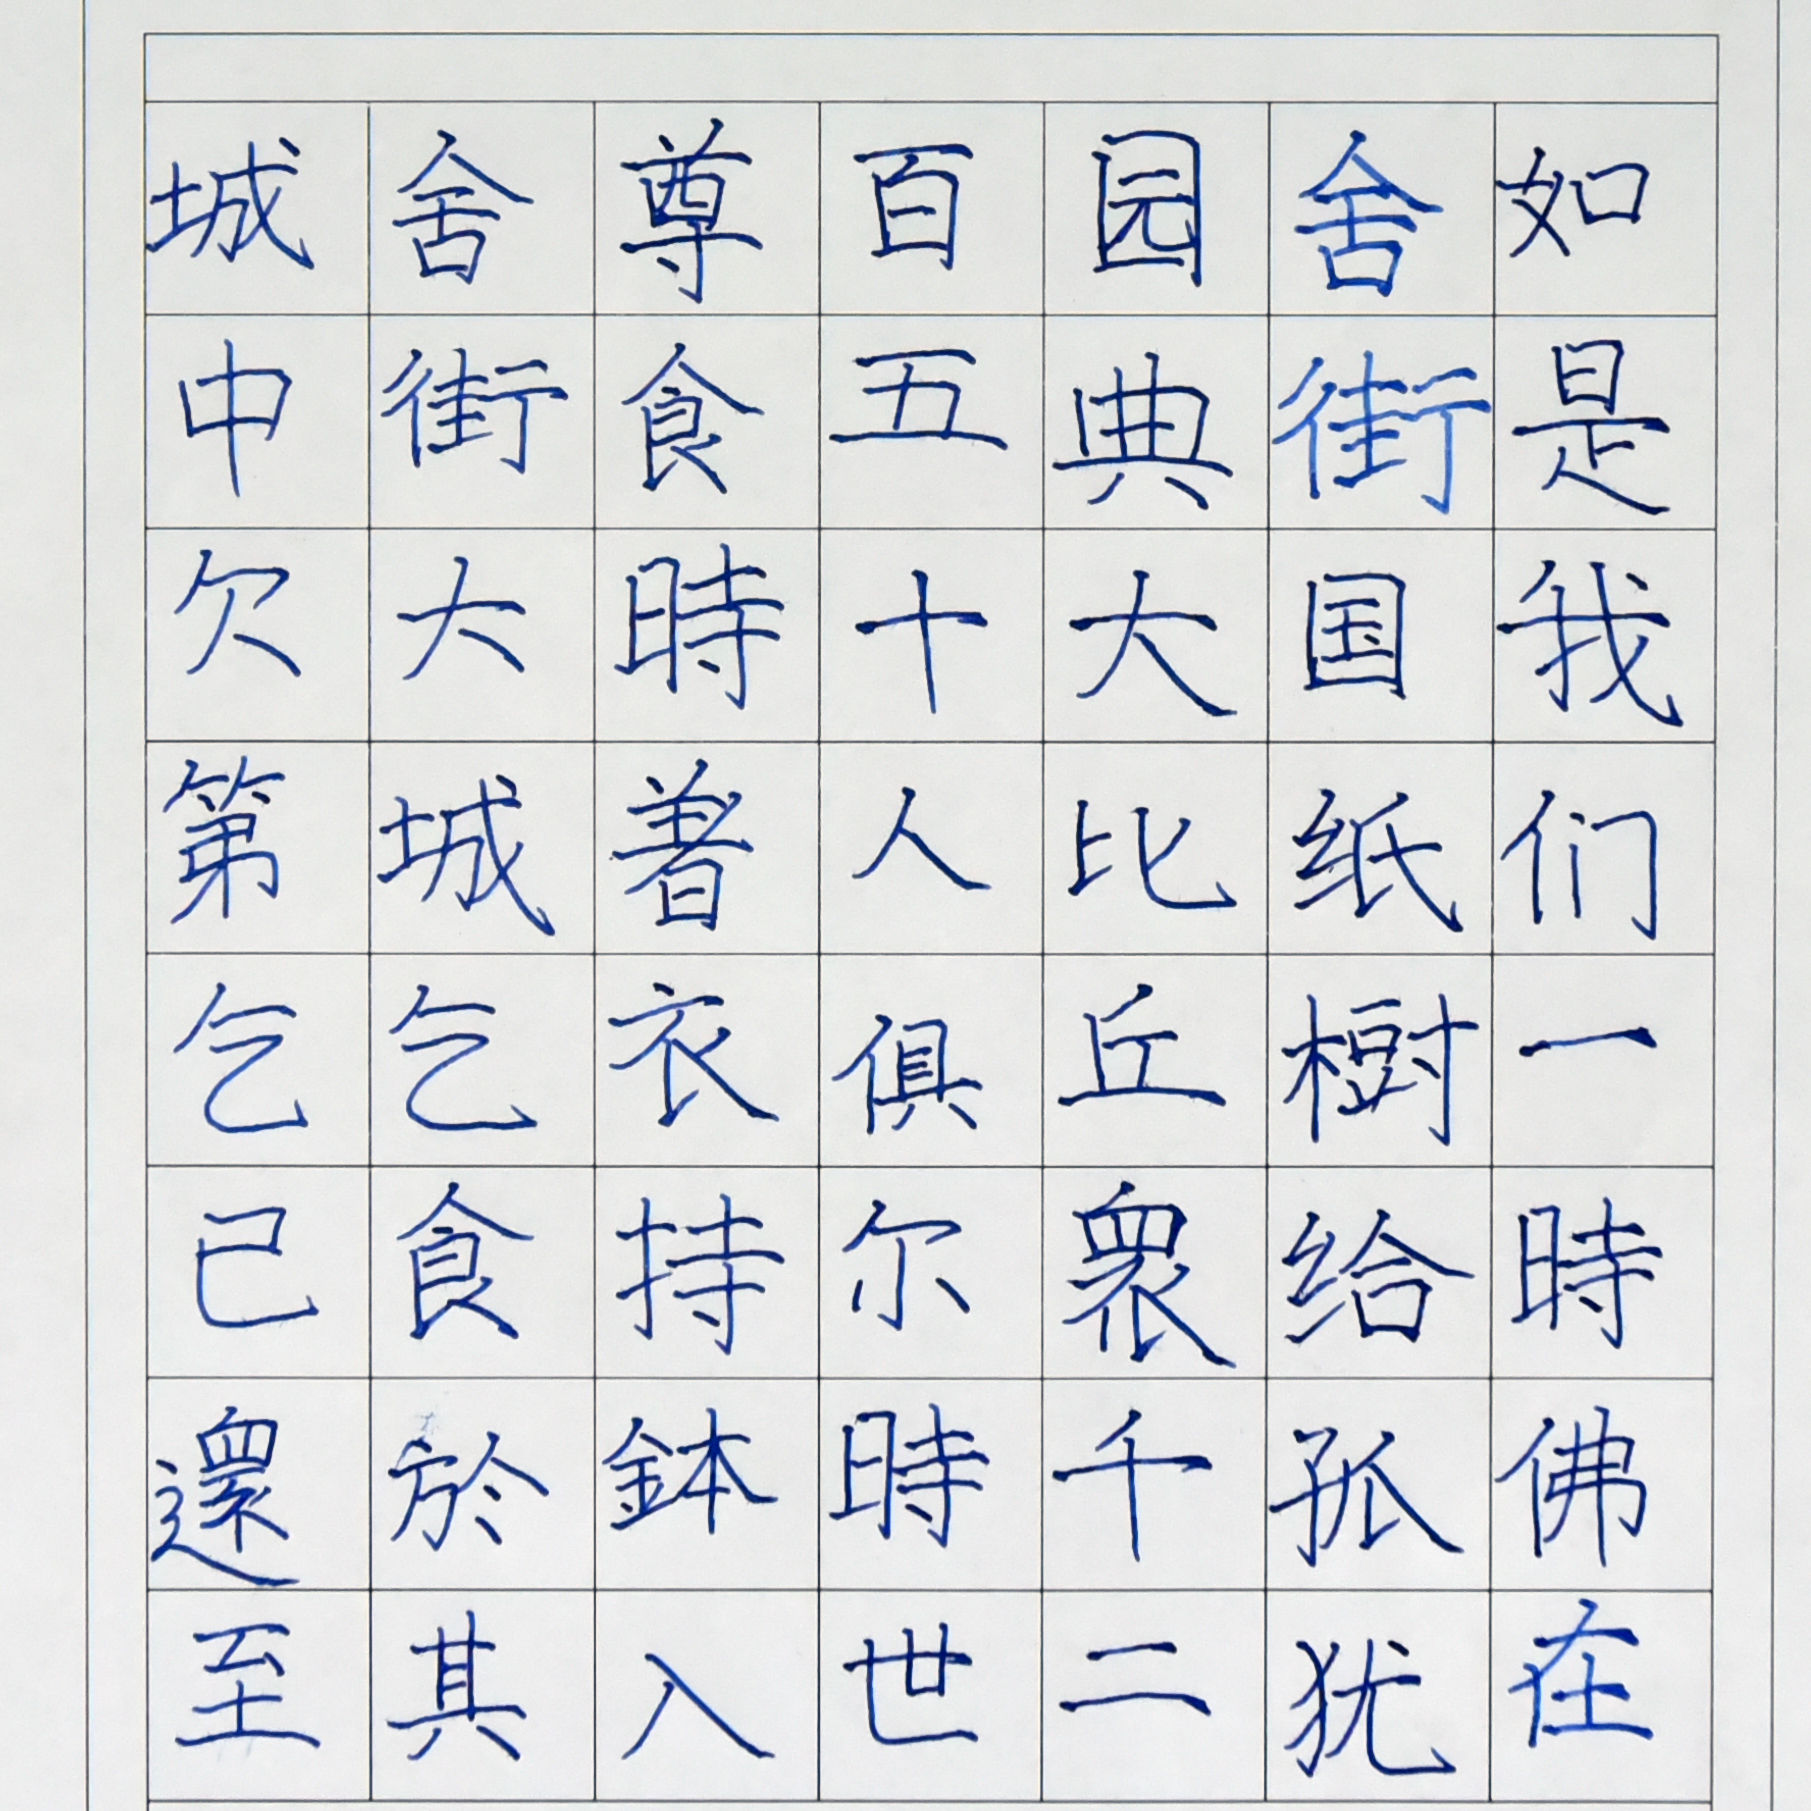 如是我们一時佛在
舍街国纸樹给孤犹
园典大比丘衆千二
百五十人俱尔時世
尊食時著衣持鉢入
舍街大城乞食於其
城中欠第乞已還至